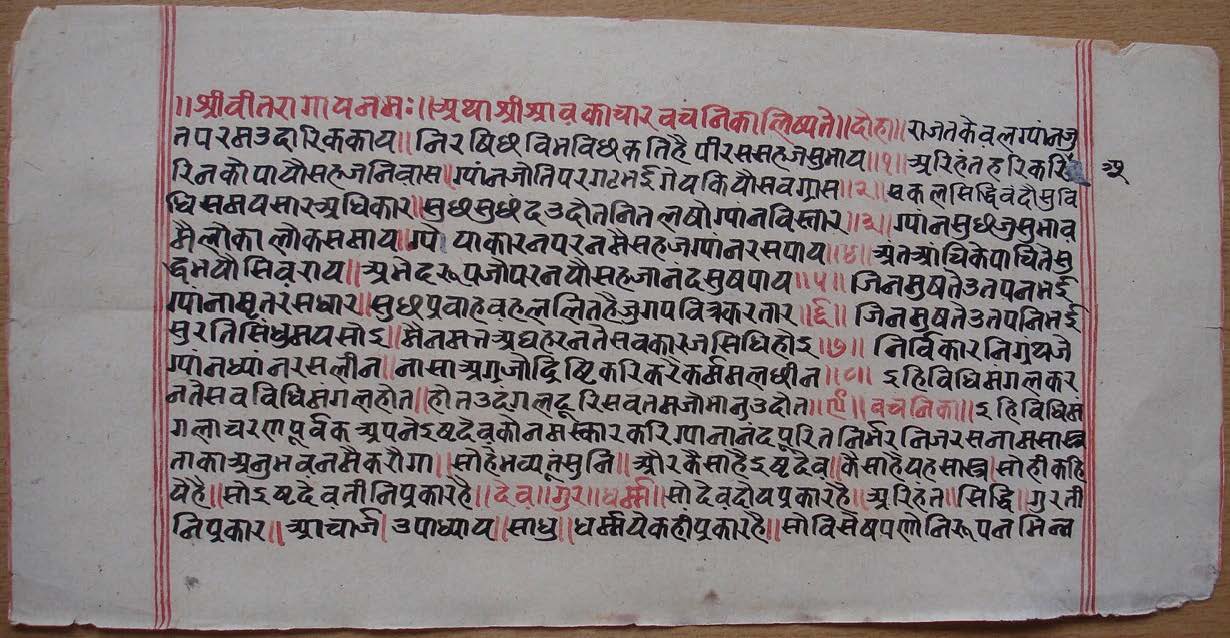 ॥श्रीवीतरागायनमः॥अथाश्रीश्रावकाचारवचंनिकालिष्यते॥दोहा॥राजतकेवलग्पांनजु
तपरमउदारिककाय॥निरषिछविभविछकतिहैपीरससहजसुभाय॥१॥अरिहंतहरिकरि
रिनकोपायौसहजनिवास॥ग्पांनजौतिपरगटभईगेयकियौसवग्रास॥२॥सकलसिद्धिवंदौसुवि
धिसमयसारअधिकार॥सुछसुछंदउदौतनितलषोग्पांनविस्तार॥३॥ग्पांनसुछजुसुभाव
मैलोकालोकसमाय॥ग्पेयाकारनपरनमैसहजग्पांनरसपाय॥४॥अंतआंचिकेपाचितैसु
द्धभयौसिवराय॥अभेदरूपजोपरनयौसहजानंदसुषपाय॥५॥जिनमुषतैउतपनभई
ग्पानामृतरसधार॥सुछप्रवाहवहलललितहैजुगपवित्रकरतार॥६॥जिनमुषतैउतपनिभई
सुरतिसिंधुमयसोइ॥मैनमतअघहरनतैसवकारजसिधिहोइ॥७॥निर्विकारनिग्रंथजे
ग्पांनध्यांनरसलीन॥नासाअग्रजोद्रिष्टिकरिकरैकर्ममलछीन॥८॥इहिविधिमंगलकर
नतैसवविधिमंगलहोत॥होतउदंगलदूरिसवतमजोभानुउदोत॥९॥वचंनिका॥इहिविधिमं
गलाचरणपूर्वकअपनेइष्टदेवकोनमस्कारकरिग्पानानंदपूरितनिर्भरनिजरसनामसास्त्र
ताकाअनुभवनमैकरौगा॥सोहेभव्यतूंसुनि॥औरकैसाहैइष्टदेव॥कैसाहैयहसास्त्र॥सोहीकहि
येहै॥सोइष्टदेवतीनिप्रकारहै॥देव॥गुर॥धर्म॥सोदेवदोयप्रकारहै॥अरिहंत॥सिद्धि॥गुरती
निप्रकार॥आचार्ज॥उपाध्याय॥साधु॥धर्मयेकहीप्रकारहै॥सोविसेषपणेनिरूपनभिन्न